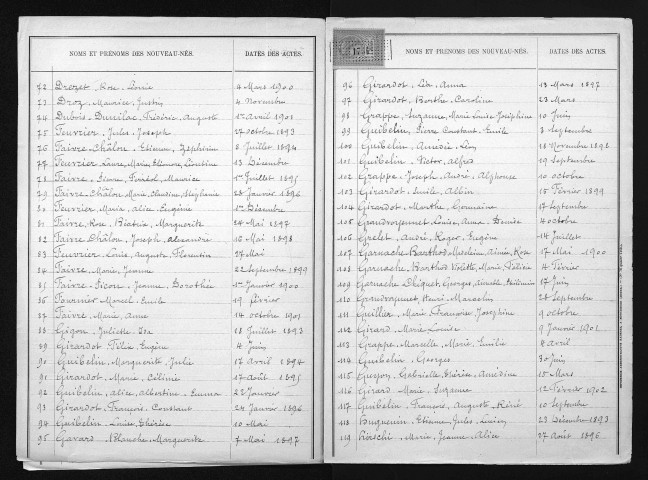 NOMS ET PRÉNOMS DES NOUVEAU-NÉS. DATES DES ACTES.
72 Drezet, Rose Léonie 4 Mars 1900
73 Droz, Maurice Justin 4 Novembre
74 Dubois Dunilac, Frédéric Auguste 1er Avril 1901
75 Feuvrier, Jules Joseph 27 octobre 1893
76 Faivre Châlon, Etienne Zéphirin 8 Juillet 1894
77 Feuvrier, Laure Marie Eléonore Léontine 13 Décembre
78 Faivre, Maurice 1er Juillet 1895
79 Faivre Châlon Marie Christine Stéphanie 28 Janvier 1896
80 Feuvrier, Marie Alice Eugénie 1er Décembre
81 Faivre, Rose Béatrix Marguerite 24 Mai 1897
82 Faivre Châlon, Joseph Alexandre 16 Mai 1898
83 Feuvrier, Louis Auguste Florentin 24 Mai
84 Faivre Marie Jeanne 22 Septembre 1899
85 Faivre Picon, Jeanne Dorothée 1er Janvier 1900
86 Fournier Marcel Emile 19 février
87 Faivre Marie Anne 14 octobre 1901
88 Gigon, Juliette Isa 18 Juillet 1893
89 Girardot, Félix Eugène 4 Juin
90 Guibelin, Marguerite Julie 17 Avril 1894
91 Girardot, Marie Céline 17 Août 1895
92 Guibelin, Alice Albertine Emma 22 Janvier
93 Girardot, François Constant 24 Janvier 1896
94 Guibelin, Louise Thérèse 10 Mai
95 Gavard, Blanche Marguerite 7 Mai 1897
NOMS ET PRÉNOMS DES NOUVEAU-NÉS. DATES DES ACTES.
96 Girardot, Léa Anna 13 Mars 1897
97 Girardot, Berthe Caroline 23 Mars
98 Grappe, Suzanne Marie Louise Joséphine 10 Juin
99 Guibelin, Pierre Constant Emile 3 Septembre
100 Guibelin, Amédée Léon 18 Novembre 1898
101 Guibelin, Victor Alfred 19 Septembre
102 Grappe, Joseph André Alphonse 10 octobre
103 Girardot, Emile Albin 15 Février 1899
104 Girardot, Marthe Germaine 17 Septembre
105 Grandvorgemet, Louise Anna Denise 4 octobre
106 Grelet, André Roger Eugène 14 Juillet
107 Garnache Barthod Madeleine Aimée Rose 17 Mai 1900
108 Garnache Barthod Violette Marie Céline 4 Février
109 Garnache Chiquet, Georges 17 Juin
110 Grandvorgemet, Henri Marcelin 28 Septembre
111 Guillier, Marie Françoise Joséphine 9 octobre
112 Girard, Marie Louise 9 Janvier 1901
113 Grappe, Marcelle Marie Emilie 4 Avril
114 Guibelin Georges 30 Juin
115 Gabrielle Thérèse Amédine 15 Mars
116 Girard Marie Suzanne 12 Février 1902
117 Guibelin, François Auguste René 10 Septembre
118 Huguenin, Etienne Jules Lucien 23 Décembre 1893
119 Marie Jeanne Alice 27 Août 1896